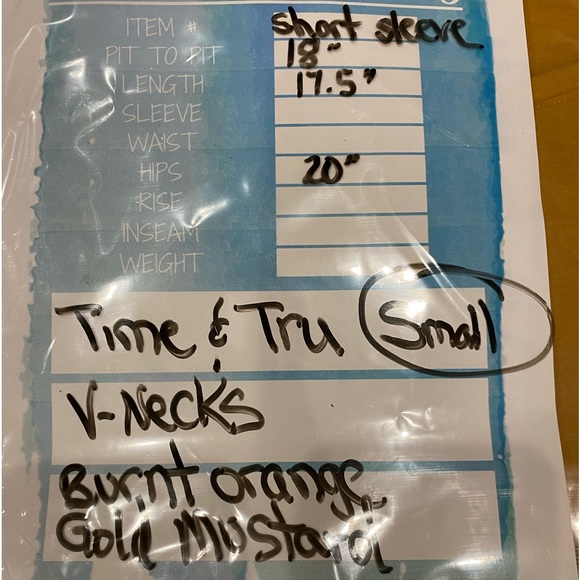 ITEM # short sleeve
PIT TO PIT 18"
LENGTH 17.5"
SLEEVE
WAIST
HIPS 20"
RISE
INSEAM
WEIGHT
Time & Tru Small
V-Necks
Burnt orange
Gold Mustard